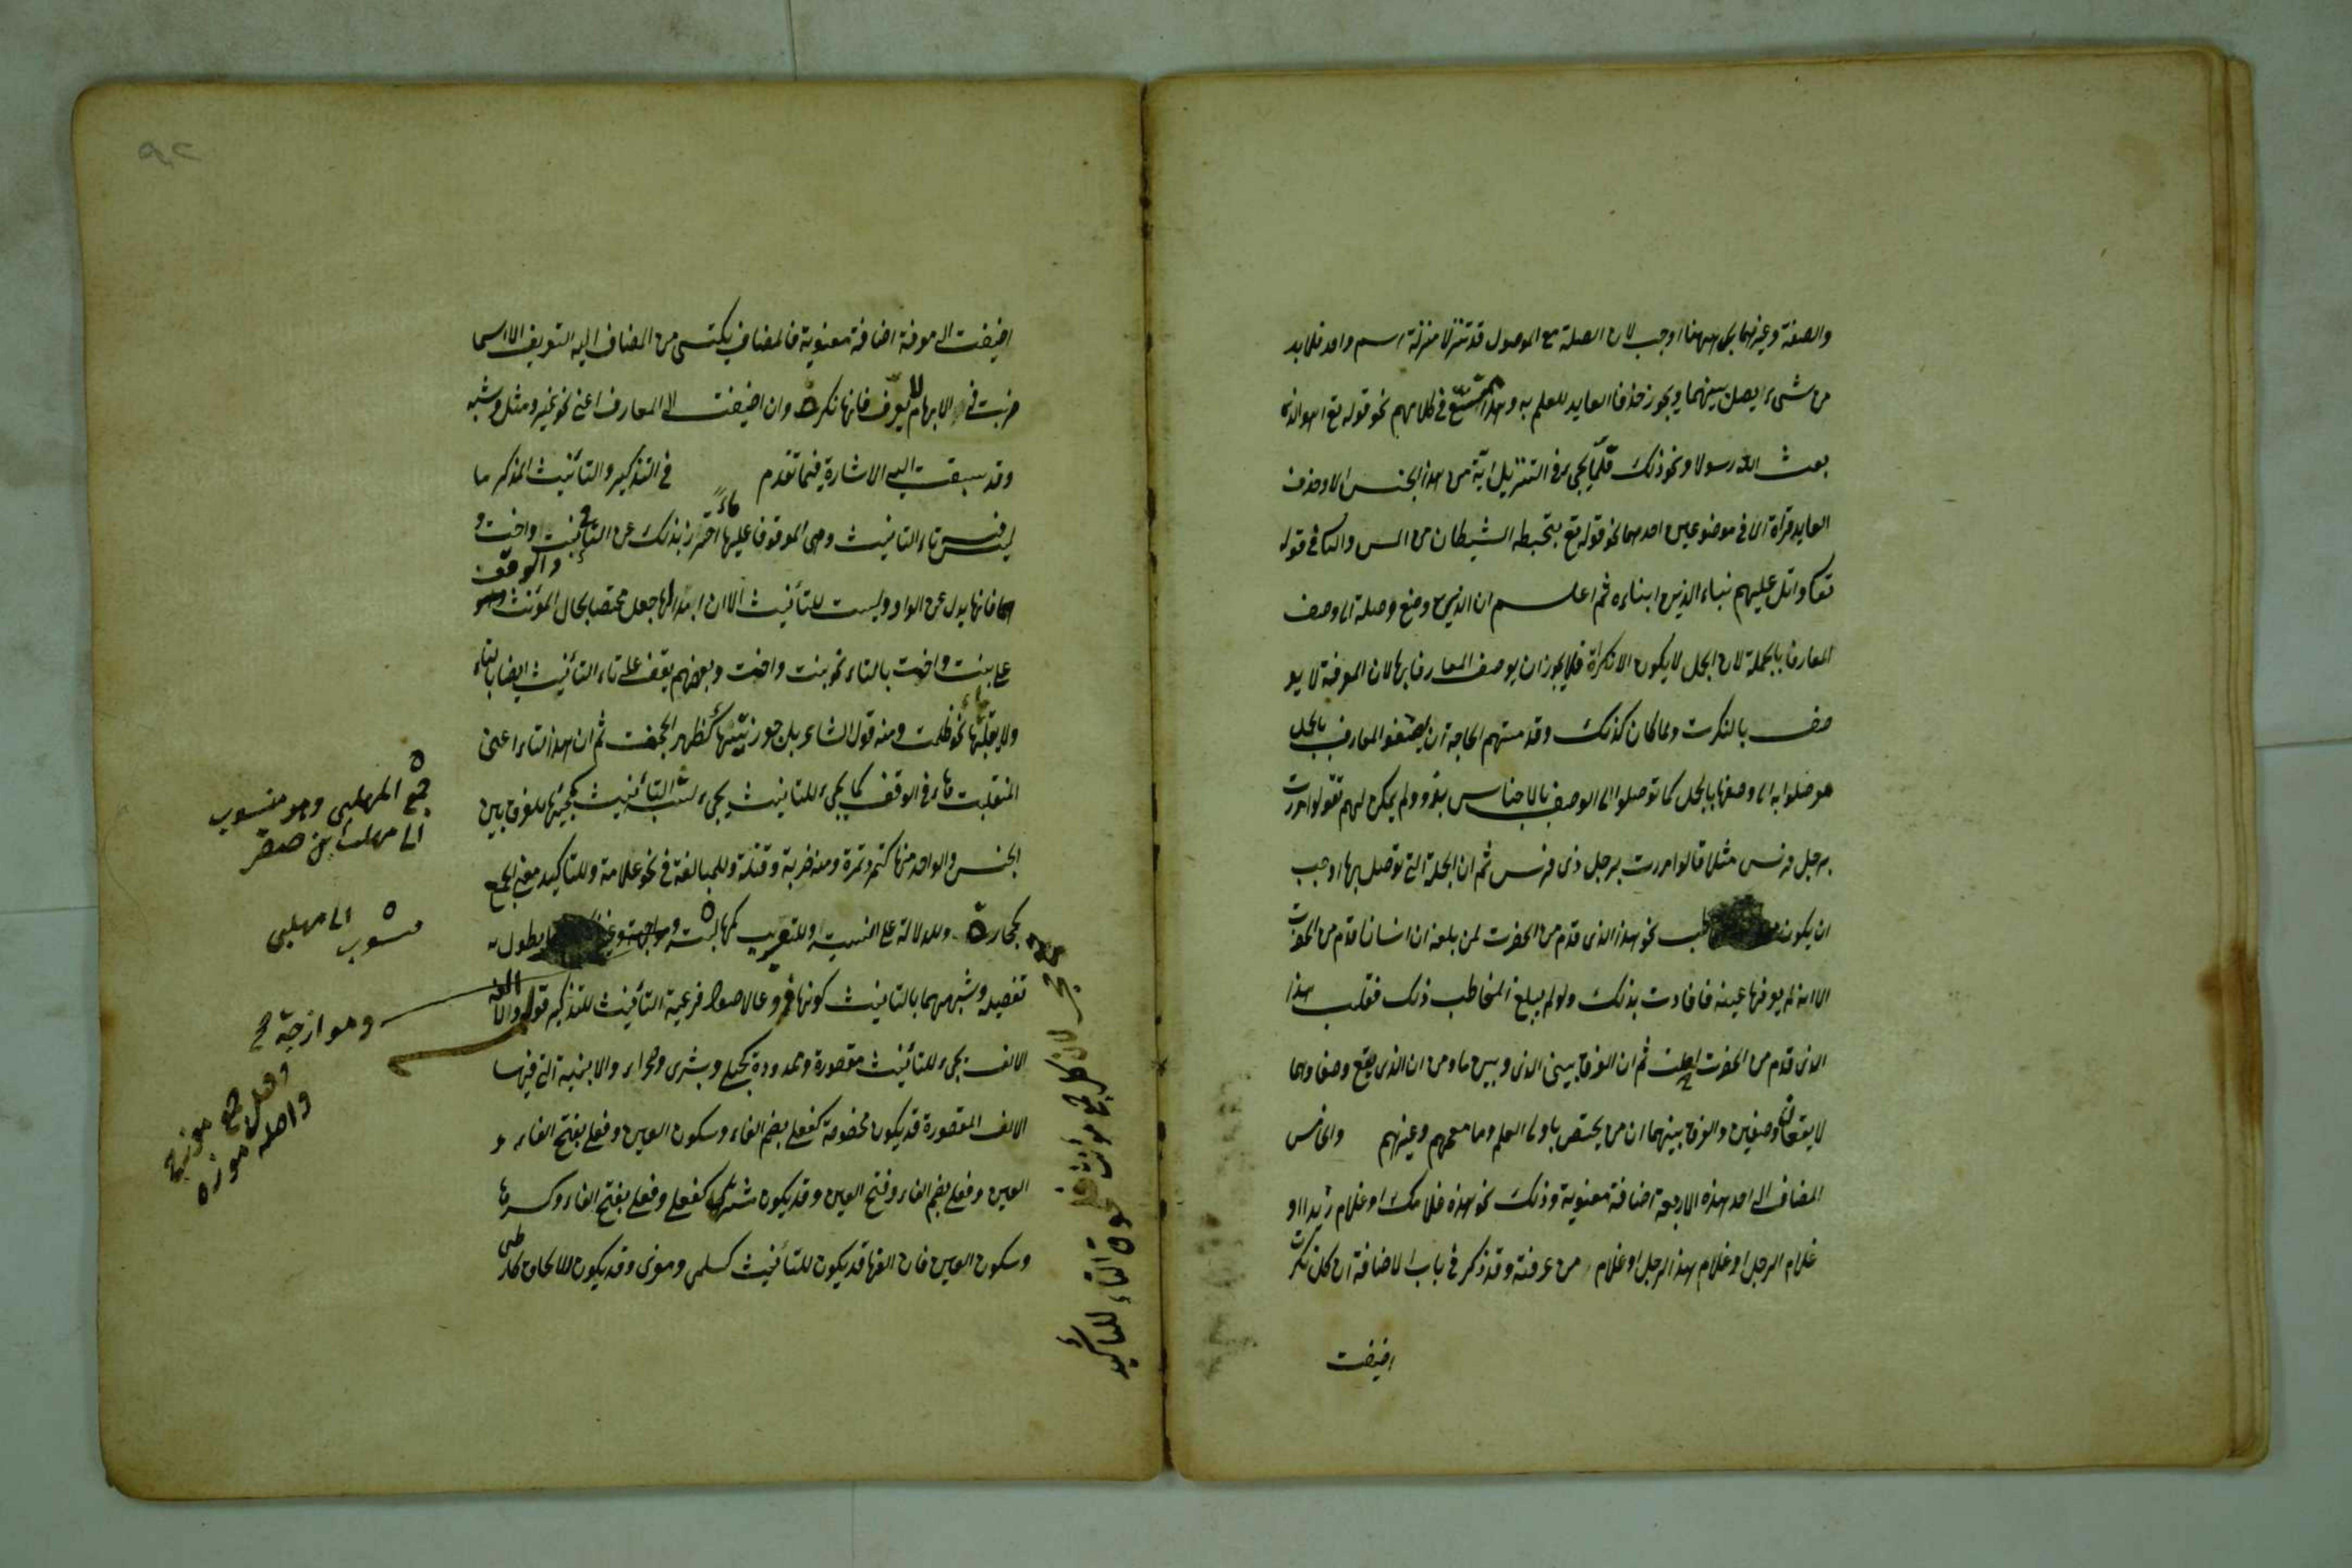 والصفة وغيرهما بل ههنا اوجب لان الصلة مع الموصول قد تنزلا منزلة اسم واحد فلا بد
من شىء ايصل بينهما ويجوز حذف العايد للعلم به وهذا متسع فى كلامهم نحو قوله تع اهذا الذى
بعث الله رسولا ونحو ذلك قلما يجىء فى التنزيل اية من هذا الجنس الا وحذف
العايد قراة الا فى موضوعين احدهما نحو قوله تع يتخبطه الشيطان من المس والثا فى قوله
تعا واتل عليهم نباء الذين ايناه ثم اعلم ان الذى وضع وصلة الى وصف
المعارف بالجملة لان الجمل لا يكون الا نكراة فلا يجوز ان يوصف المعارف بها لان المعرفة لا يو
صف بالنكرت ولما كان كذلك وقد مستهم الحاجة ان يصفوا المعارف بالجمل
هو ضلوا به الى وصفها بالجمل كما توصلوا الى الوصف بالاجناس بذو ولم يمكن لهم تقولوا مررت
برجل فرس مثلا قالوا مررت برجل ذى فرس ثم ان الجملة التى توصل بها اوجب
ان يكون طب نحو هذا الذى قدم من الحضرت لمن بلغه ان انسانا قدم من الحضرت
الا انه لم يعرفها عينه فافادت بذلك ولو لم يبلغ المخاطب ذلك فقلت هذا
الذى قدم من الحضرت ثم ان الفرق بينى الذى وبين ما ومن ان الذى يقع وصفا وهما
لا يقعان وصفين والفرق بينهما ان من يختص باولى العلم وما معهم وغيرهم والخامس
المضاف الى احد هذه الاربعة اضافة معنوية وذلك نحو هذه غلامك او غلام زيد او
غلام الرجل او غلام هذا الرجل او غلام من عرفته وقد ذكر فى باب الاضافة ان كل نكرت
اضيفت
اضيفت الى معرفة اضافة معنوية فالمضاف يكتسى من المضاف اليه التعريف الا اسما
ضربت فى الابهام لا يعرف فانها نكرة وان اضيفت الى المعارف اعنى نحو غير ومثل وشبه
وقد سبقت اليه الاشارة فيما تقدم فى التذكير والتأنيث المذكر ما
ليس فيه تاء التانيث وهى الموقوف عليها هاءً احترز بذلك عن التاء فى بنت واخت و
هما فانها بدل عن الواو وليست للتأنيث الا ان ابدالها جعل مختصا بحال المؤنث والوقف
على بنت واخت بالتاء نحو بنت واخت وبعضهم يقف على تاء التأنيث ايضا بتاء
ولا يقلبها هاء نحو ظلمت ومنه قول الشاعر بل جوز تيهاء كظهر الجحفت ثم ان هذا التاء اعنى
المنقلبت هاء فى الوقف كما يجىء للتانيث يجىء لشبه التأنيث كمجيئها للفرق بين
الجنس والواحد منها كتمر وتمرة ومنه ضربة وقتلة وللمبالغة فى نحو علامة وللتاكيد معنى الجمع
كحجارة وللدلالة على النسبة وللتعريب كمهالبة وموازجة يطول به
تفصيله وشبهها بالتانيث كونها فروعا لاصول فرعية التأنيث للتذكير قوله والالف
الالف يجىء للتأنيث مقصورة وممدودة كحبلى وبشرى وحمراء والابنية التى فيها
الالف المقصورة قد يكون مخصوصة كفعلى بضم الفاء وسكون العين وفعلى بفتح الفاء و
العين وفعلى بضم الفاء وفتح العين وقد يكون مشتركا كفعلى وفعلى بفتح الفاء وكسرها
وسكون العين فان الفها قد يكون للتأنيث كسلمى وقد يكون للالحاق كعلقى
جمع المهلبى وهو منسوب
الى مهلب بن صفر
منسوب الى مهلبى
وهو ازجة
جمع موزج
واصله موزه